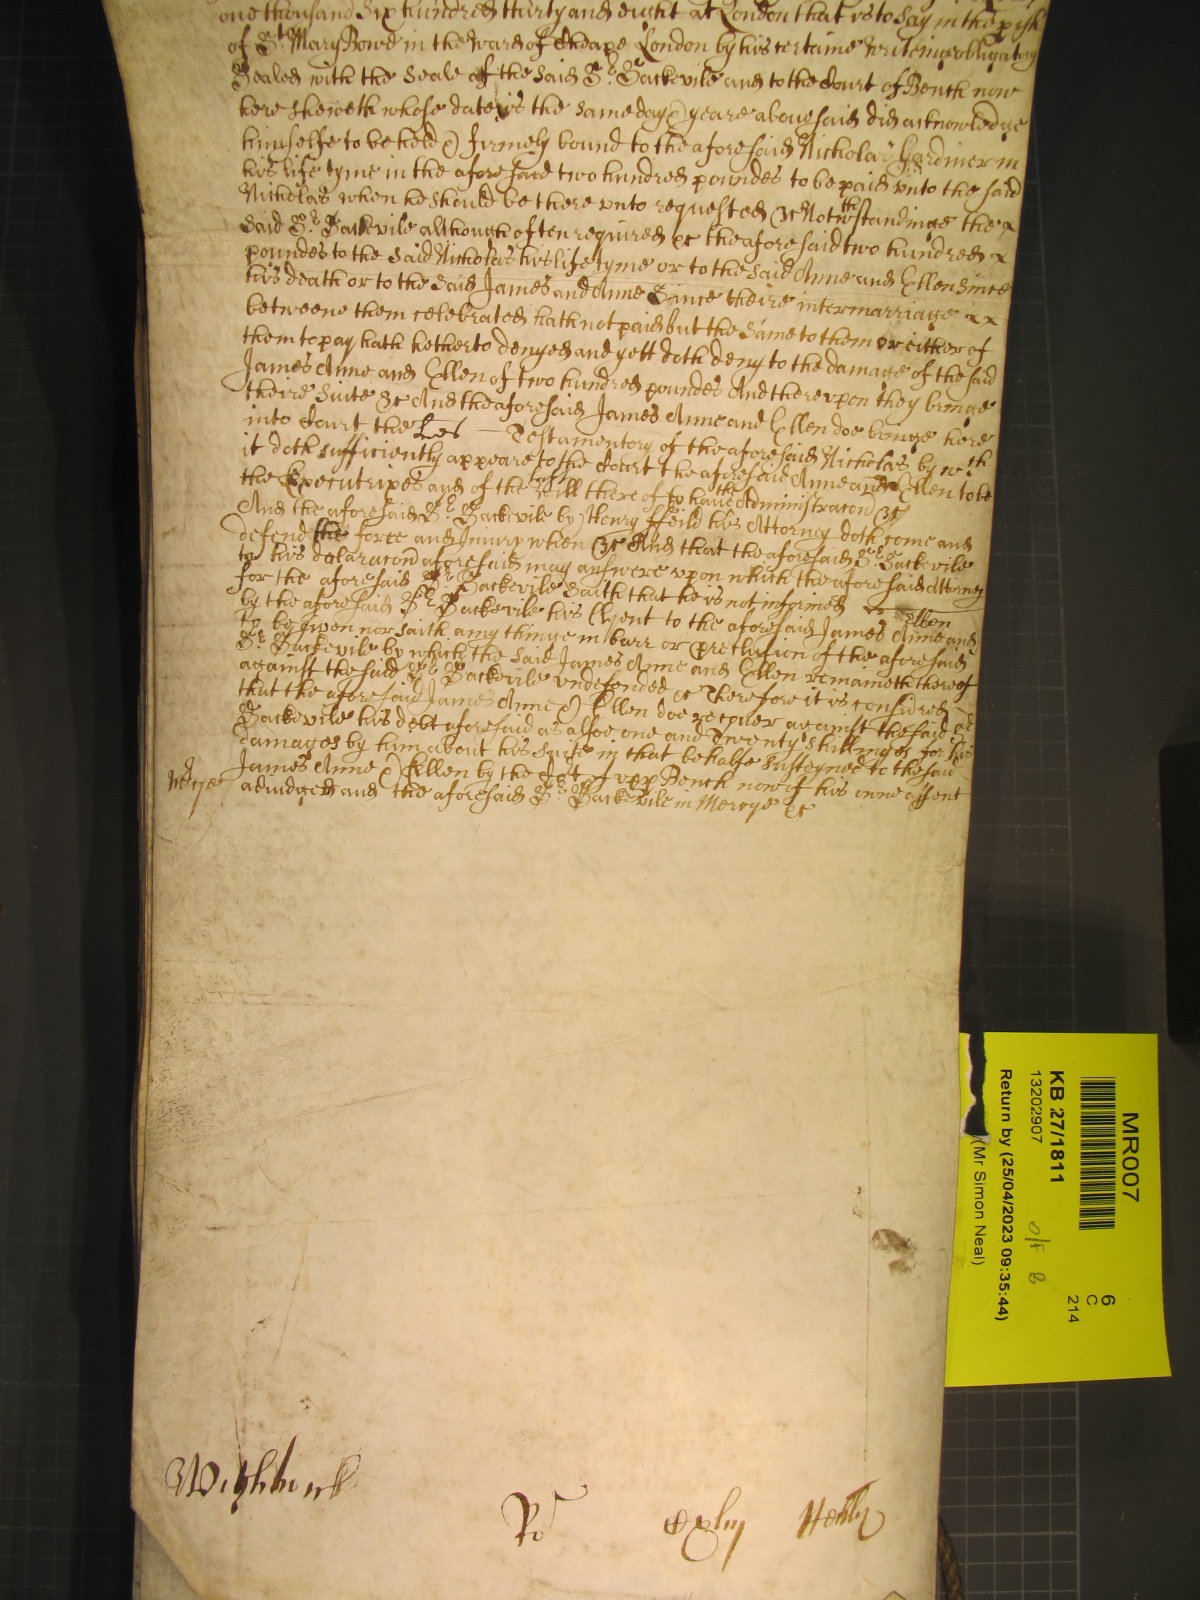 one thousand Six hundred thirty and eight at London that is to say in the pish
of St Mary Bowe in the Ward of Cheape London by his certaine writeinge obligatory
Sealed with the Seale of the said Sr Sackevile and to the Court of Bench now
here sheweth whose date is the same day & yeare abovesaid did acknowledge
himselfe to be held & firmely bound to the aforesaid Nicholas Gardiner in
his life tyme in the aforesaid two hundred poundes to be paid unto the said
Nicholas when he should be there unto requested &c Notwthstandinge the
said Sr Sackevile although often required &c the aforesaid two hundred
poundes to the said Nicholas his life tyme or to the said Anne and Ellen since
his death or to the said James and Anne Since theire intermarriage
betweene them celebrated hath not paid but the same to them or either of
them to pay hath hetherto denyed and yett doth deny to the damage of the said
James Anne and Ellen of two hundred poundes And thereupon they bringe
theire Suite &c And the aforesaid James Anne and Ellen doe bringe here
into Court the Lres Testamentory of the aforesaid Nicholas by wch
it doth sufficiently appeare to the Court the aforesaid Anne and Ellen to be
the Executrixes and of the Will there of to have the Administracon &c
And the aforesaid Sr Sackevile by Henry ffeild his Attorney doth come and
defend the force and Injury when &c And that the aforesaid Sr Sackevile
to his declaracon aforesaid may answere upon which the aforesaid Attorney
for the aforesaid Sr Sackevile Saith that he is not informed
by the aforesaid Sr Sackevile his Clyent to the aforesaid James Anne and Ellen
to be given nor saith any thinge in barr or preclusion of the aforesaid
Sr Sackevile by which the said James Anne and Ellen remaineth thereof
against the said Sr Sackevile undefended &c Therefore it is considred
that the aforesaid James Anne & Ellen doe recover against the said Sr
Sackevile his debt aforesaid as alsoe one and Twenty shillinges for his
damages by him about his suite in that behalfe susteyned to the said
James Anne & Ellen by the Court of upp Bench now of his owne assent
adiudged and the aforesaid Sr Sackevile in Mercye &c
Mercye
Wightwick
Ro
Oxley
MR007
6
C
214
KB 27/1811
13202907
O/F B
Return by (25/04/2023 09:35:44)
(Mr Simon Neal)